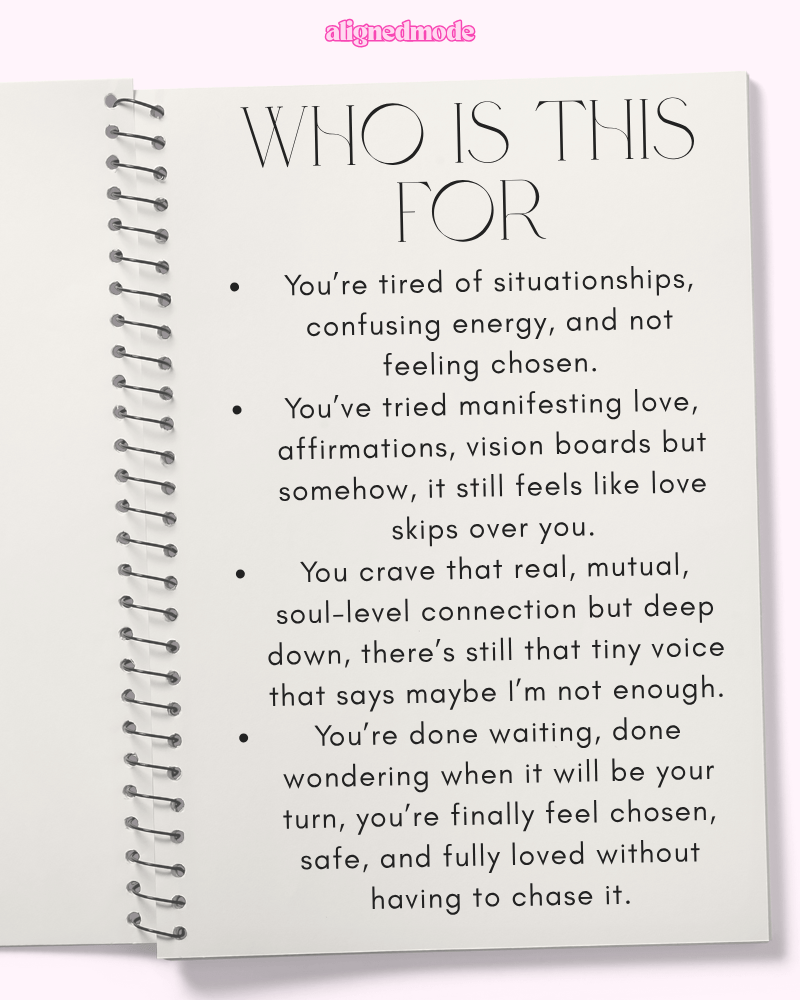 alignedmode
WHO IS THIS
FOR
• You're tired of situationships,
confusing energy, and not
feeling chosen.
• You've tried manifesting love,
affirmations, vision boards but
somehow, it still feels like love
skips over you.
• You crave that real, mutual,
soul-level connection but deep
down, there's still that tiny voice
that says maybe I'm not enough.
• You're done waiting, done
wondering when it will be your
turn, you're finally feel chosen,
safe, and fully loved without
having to chase it.